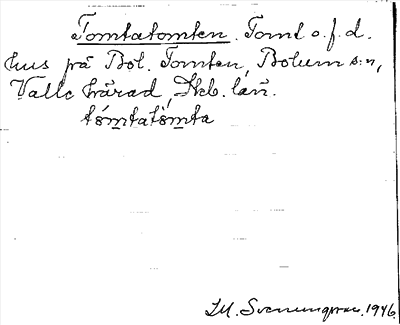 Tomtatomten. Tomt o.f.d.
hus på Bol. Tomten, Bolum s:n,
Valle härad, Skb. län.
tómtatòmta
I.M. Svenungsson. 1946.